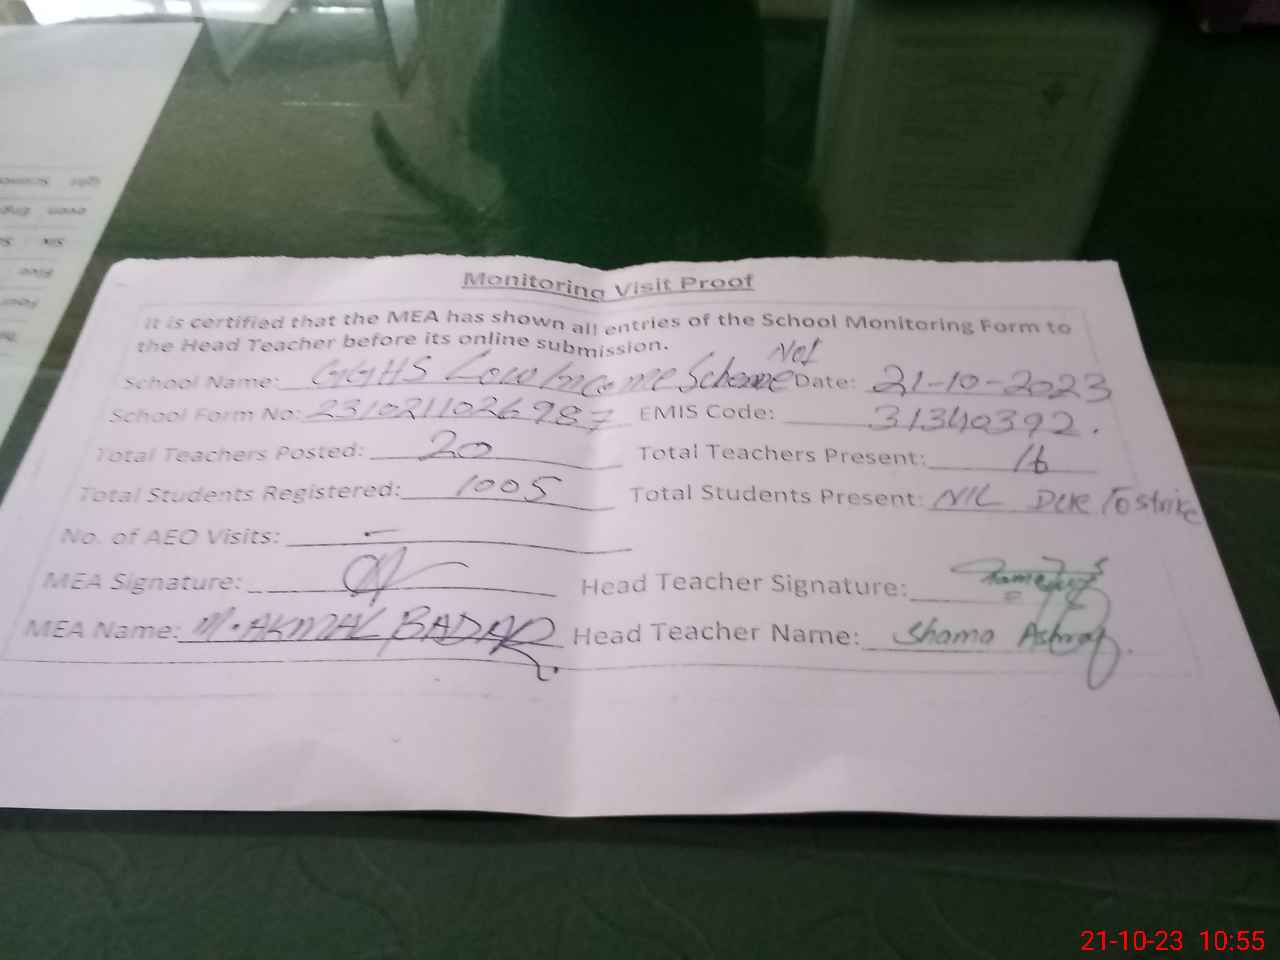 Monitoring Visit Proof
It is certified that the MEA has shown all entries of the School Monitoring Form to
the Head Teacher before its online submission.
School Name: GGHS Low Income Scheme No1 Date: 21-10-2023
School Form No: 231021102698 EMIS Code: 31340392.
Total Teachers Posted: 20 Total Teachers Present: 16
Total Students Registered: 1005 Total Students Present: NIL Due To strike
No. of AEO Visits: -
MEA Signature: Head Teacher Signature:
MEA Name: M. AKMAL BADAR Head Teacher Name: Shama Ashraf.
21-10-23 10:55